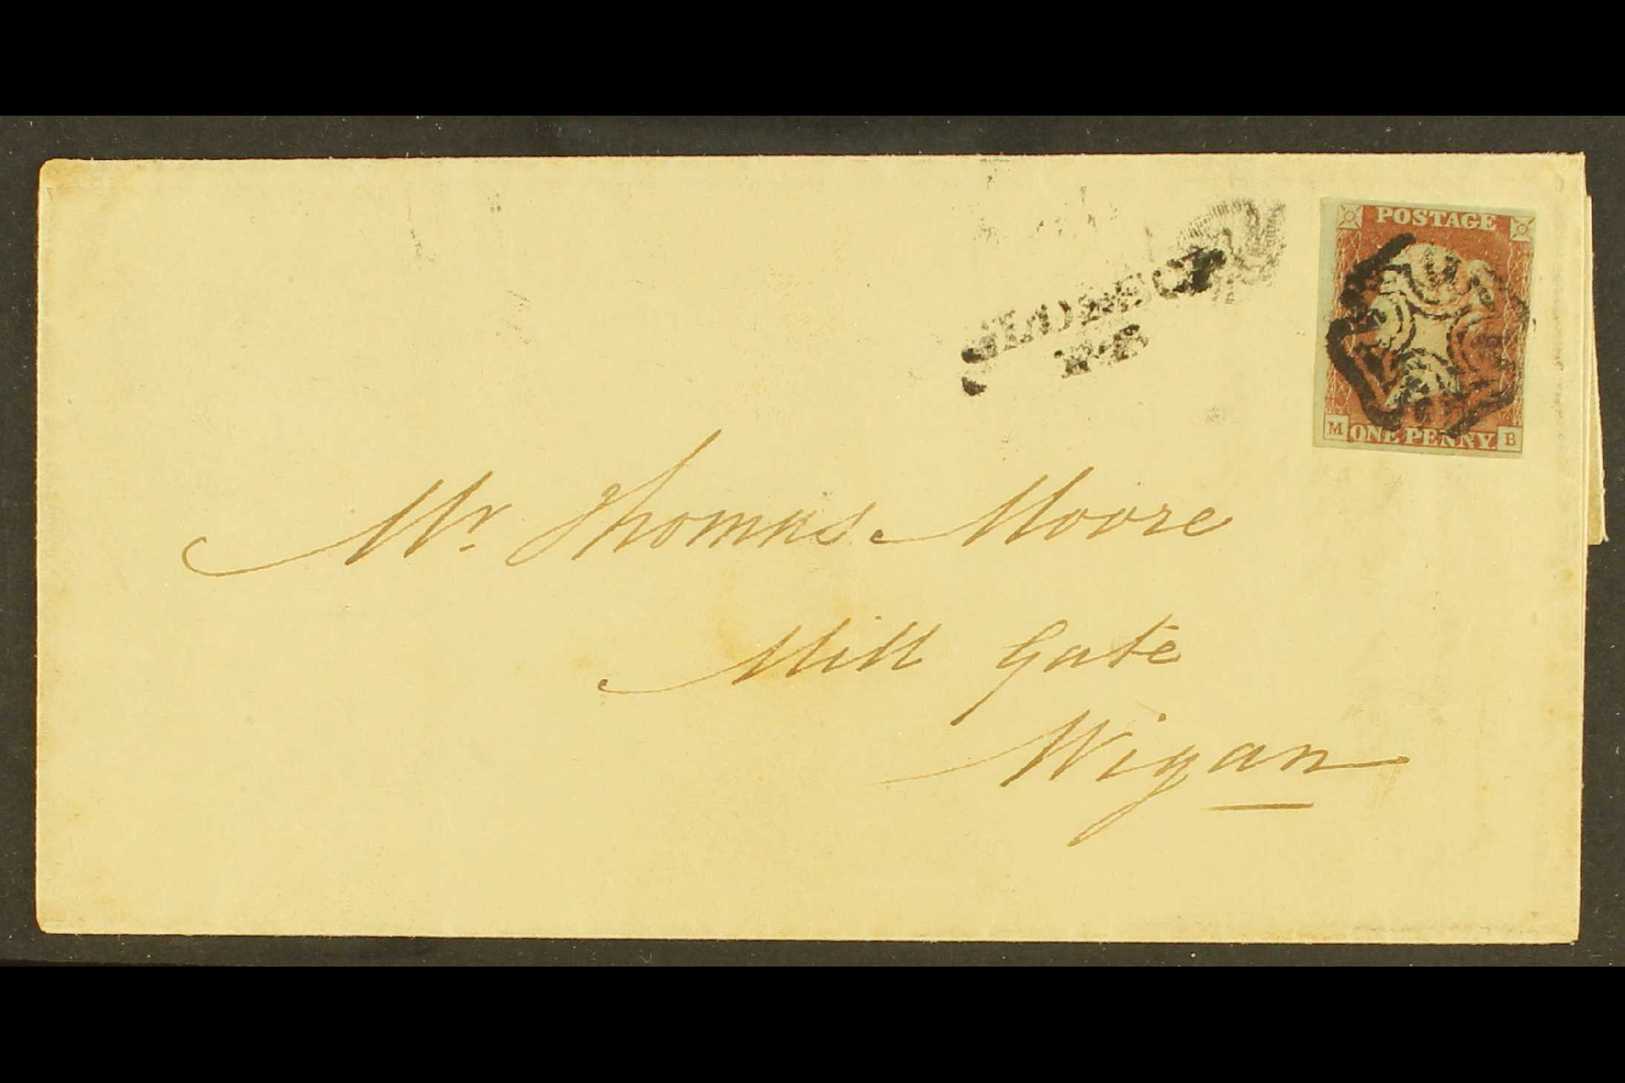 POSTAGE
M ONE PENNY. B
Mr. Thomas Moore
Mill Gate
Wigan